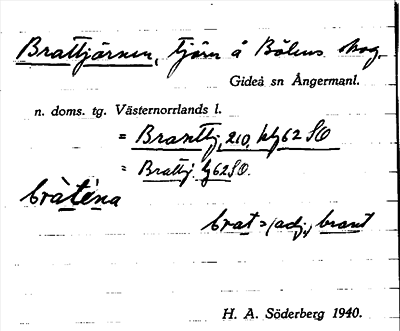 Brattjärnen, tjärn å Bölens skog.
Gideå sn Ångermanl.
n. doms. tg. Västernorrlands l.
= Branttj. 210,blg 62 SO
= Brattj. bg 62 SO.
bràténa
brat = (adj.) brant
H. A. Söderberg 1940.